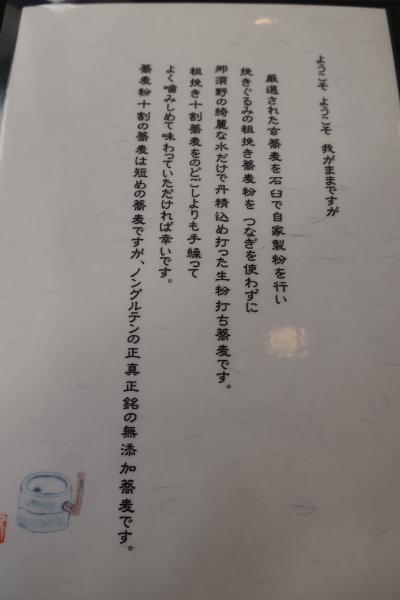 ようこそ ようこそ 我がままですが
厳選された玄蕎麦を石臼で自家製粉を行い
挽きぐるみの粗挽き蕎麦粉を つなぎを使わずに
那須野の綺麗な水だけで丹精込め打った生粉打ち蕎麦です。
粗挽き十割蕎麦をのどごしよりも手繰って
よく噛みしめて味わっていただければ幸いです。
蕎麦粉十割の蕎麦は短めの蕎麦ですが、ノングルテンの正真正銘の無添加蕎麦です。